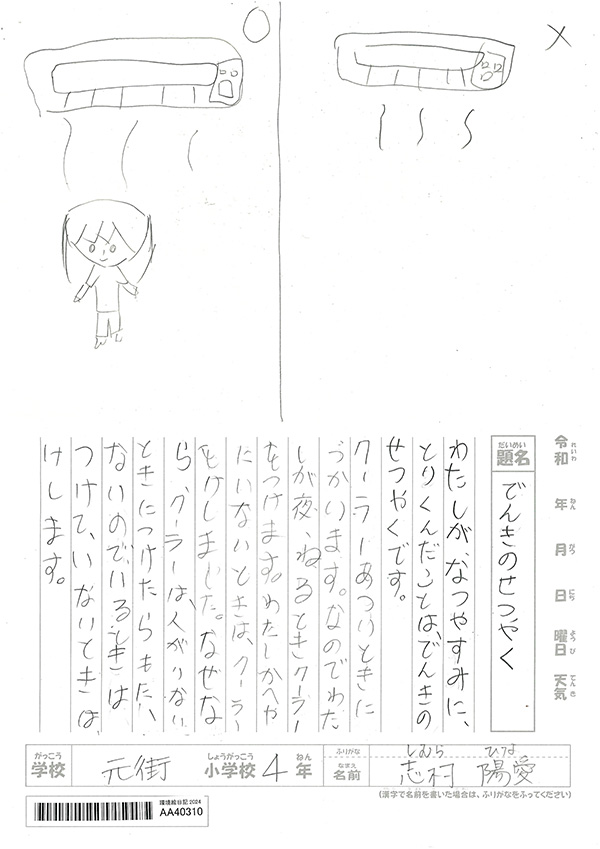 ○
×
令和 年 月 日 曜日 天気
れいわ ねん がつ にち ようび てんき
だいめい
題名
でんきのせつやく
わたしが、なつやすみに、
とりくんだことは、でんきの
せつやくです。
クーラーあついときに
つかいます。なのでわた
しが夜、ねるときクーラー
をつけます。わたしがへや
にいないときは、クーラー
をけしました。なぜな
ら、クーラーは、人がいない
ときにつけたらもたい
ないのでいるときは
つけて、いないときは、
けします。
がっこう
学校
元街
しょうがっこう
小学校
4
ねん
年
ふりがな
しむら ひな
なまえ
名前
志村 陽愛
(漢字で名前を書いた場合は、ふりがなをふってください)
環境絵日記2024
AA40310